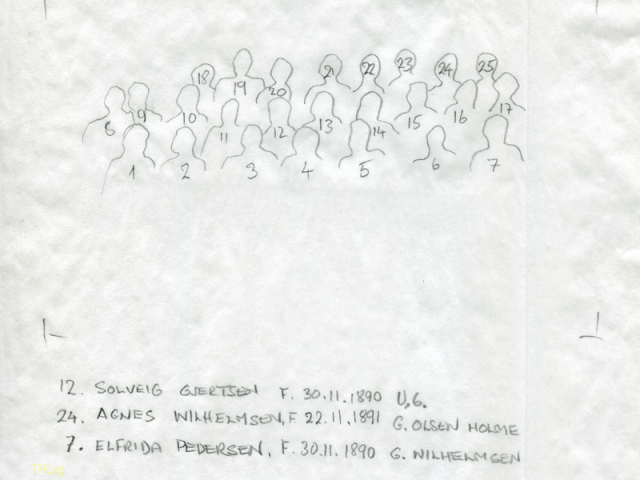 18 19 20 21 22 23 24 25
8 9 10 11 12 13 14 15 16 17
1 2 3 4 5 6 7
12. SOLVEIG GJERTSEN F. 30.11.1890 U.G.
24. AGNES WILHELMSEN, F 22.11.1891 G. OLSEN HOLME
7. ELFRIDA PEDERSEN, F. 30.11.1890 G. WILHELMSEN